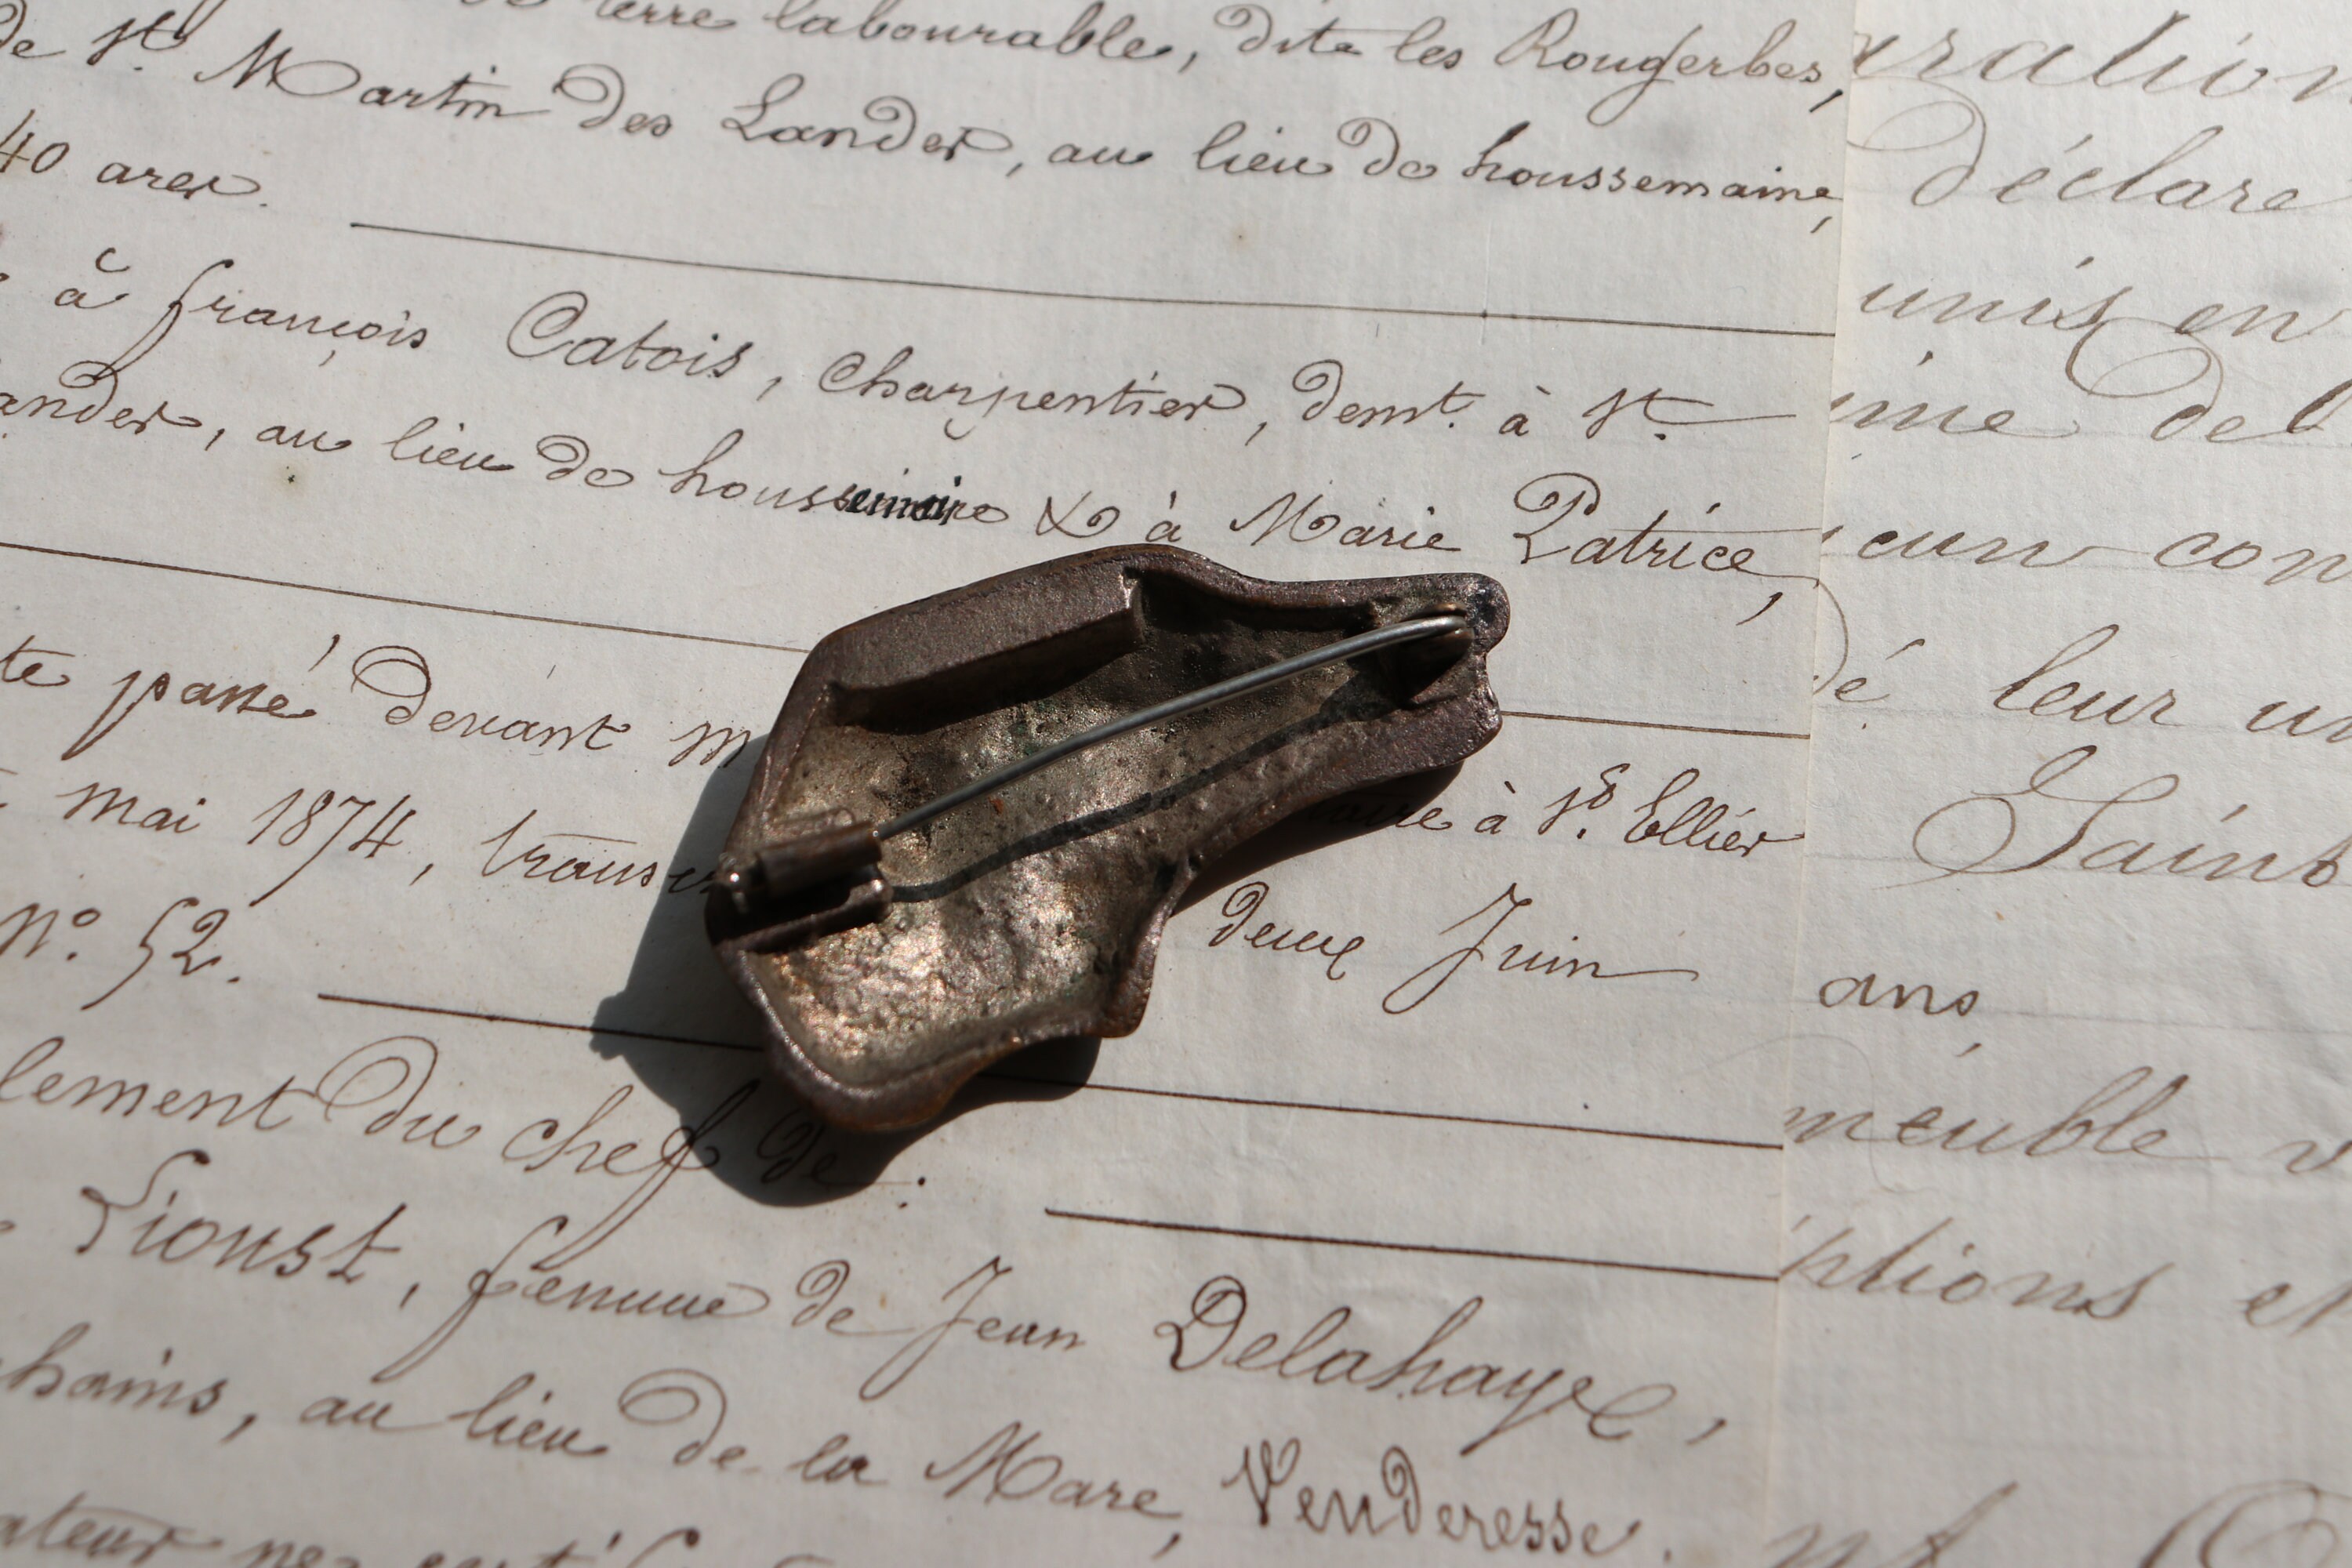 terre labourable, dite les Rougerbes,
de St. Martin des Landes, au lieu de houssemaine,
40 ares.
à françois Catois, Charpentier, demt. à St.
andes, au lieu de houssemaine & à Marie Patrice,
te passé devant m à St. Ellier
mai 1874, transc deux Juin
No. 52.
lement du chef de :
Lioust, femme de Jean Delahaye,
hains, au lieu de la Mare, Venderesse.
ration
déclare
unis en
ime de
cun con
dé leur un
Saint
ans
meuble v
ptions et